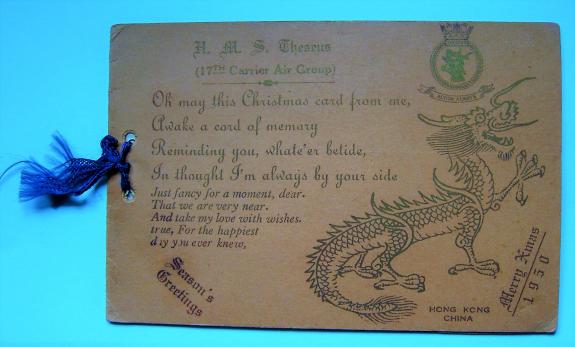 H. M. S. Theseus
(17TH Carrier Air Group)
Oh may this Christmas card from me,
Awake a cord of memory
Reminding you, whate'er betide,
In thought I'm always by your side
Just fancy for a moment, dear.
That we are very near.
And take my love with wishes.
true, For the happiest
day you ever knew,
Season's
Greetings
HONG KONG
CHINA
Merry Xmas
1950